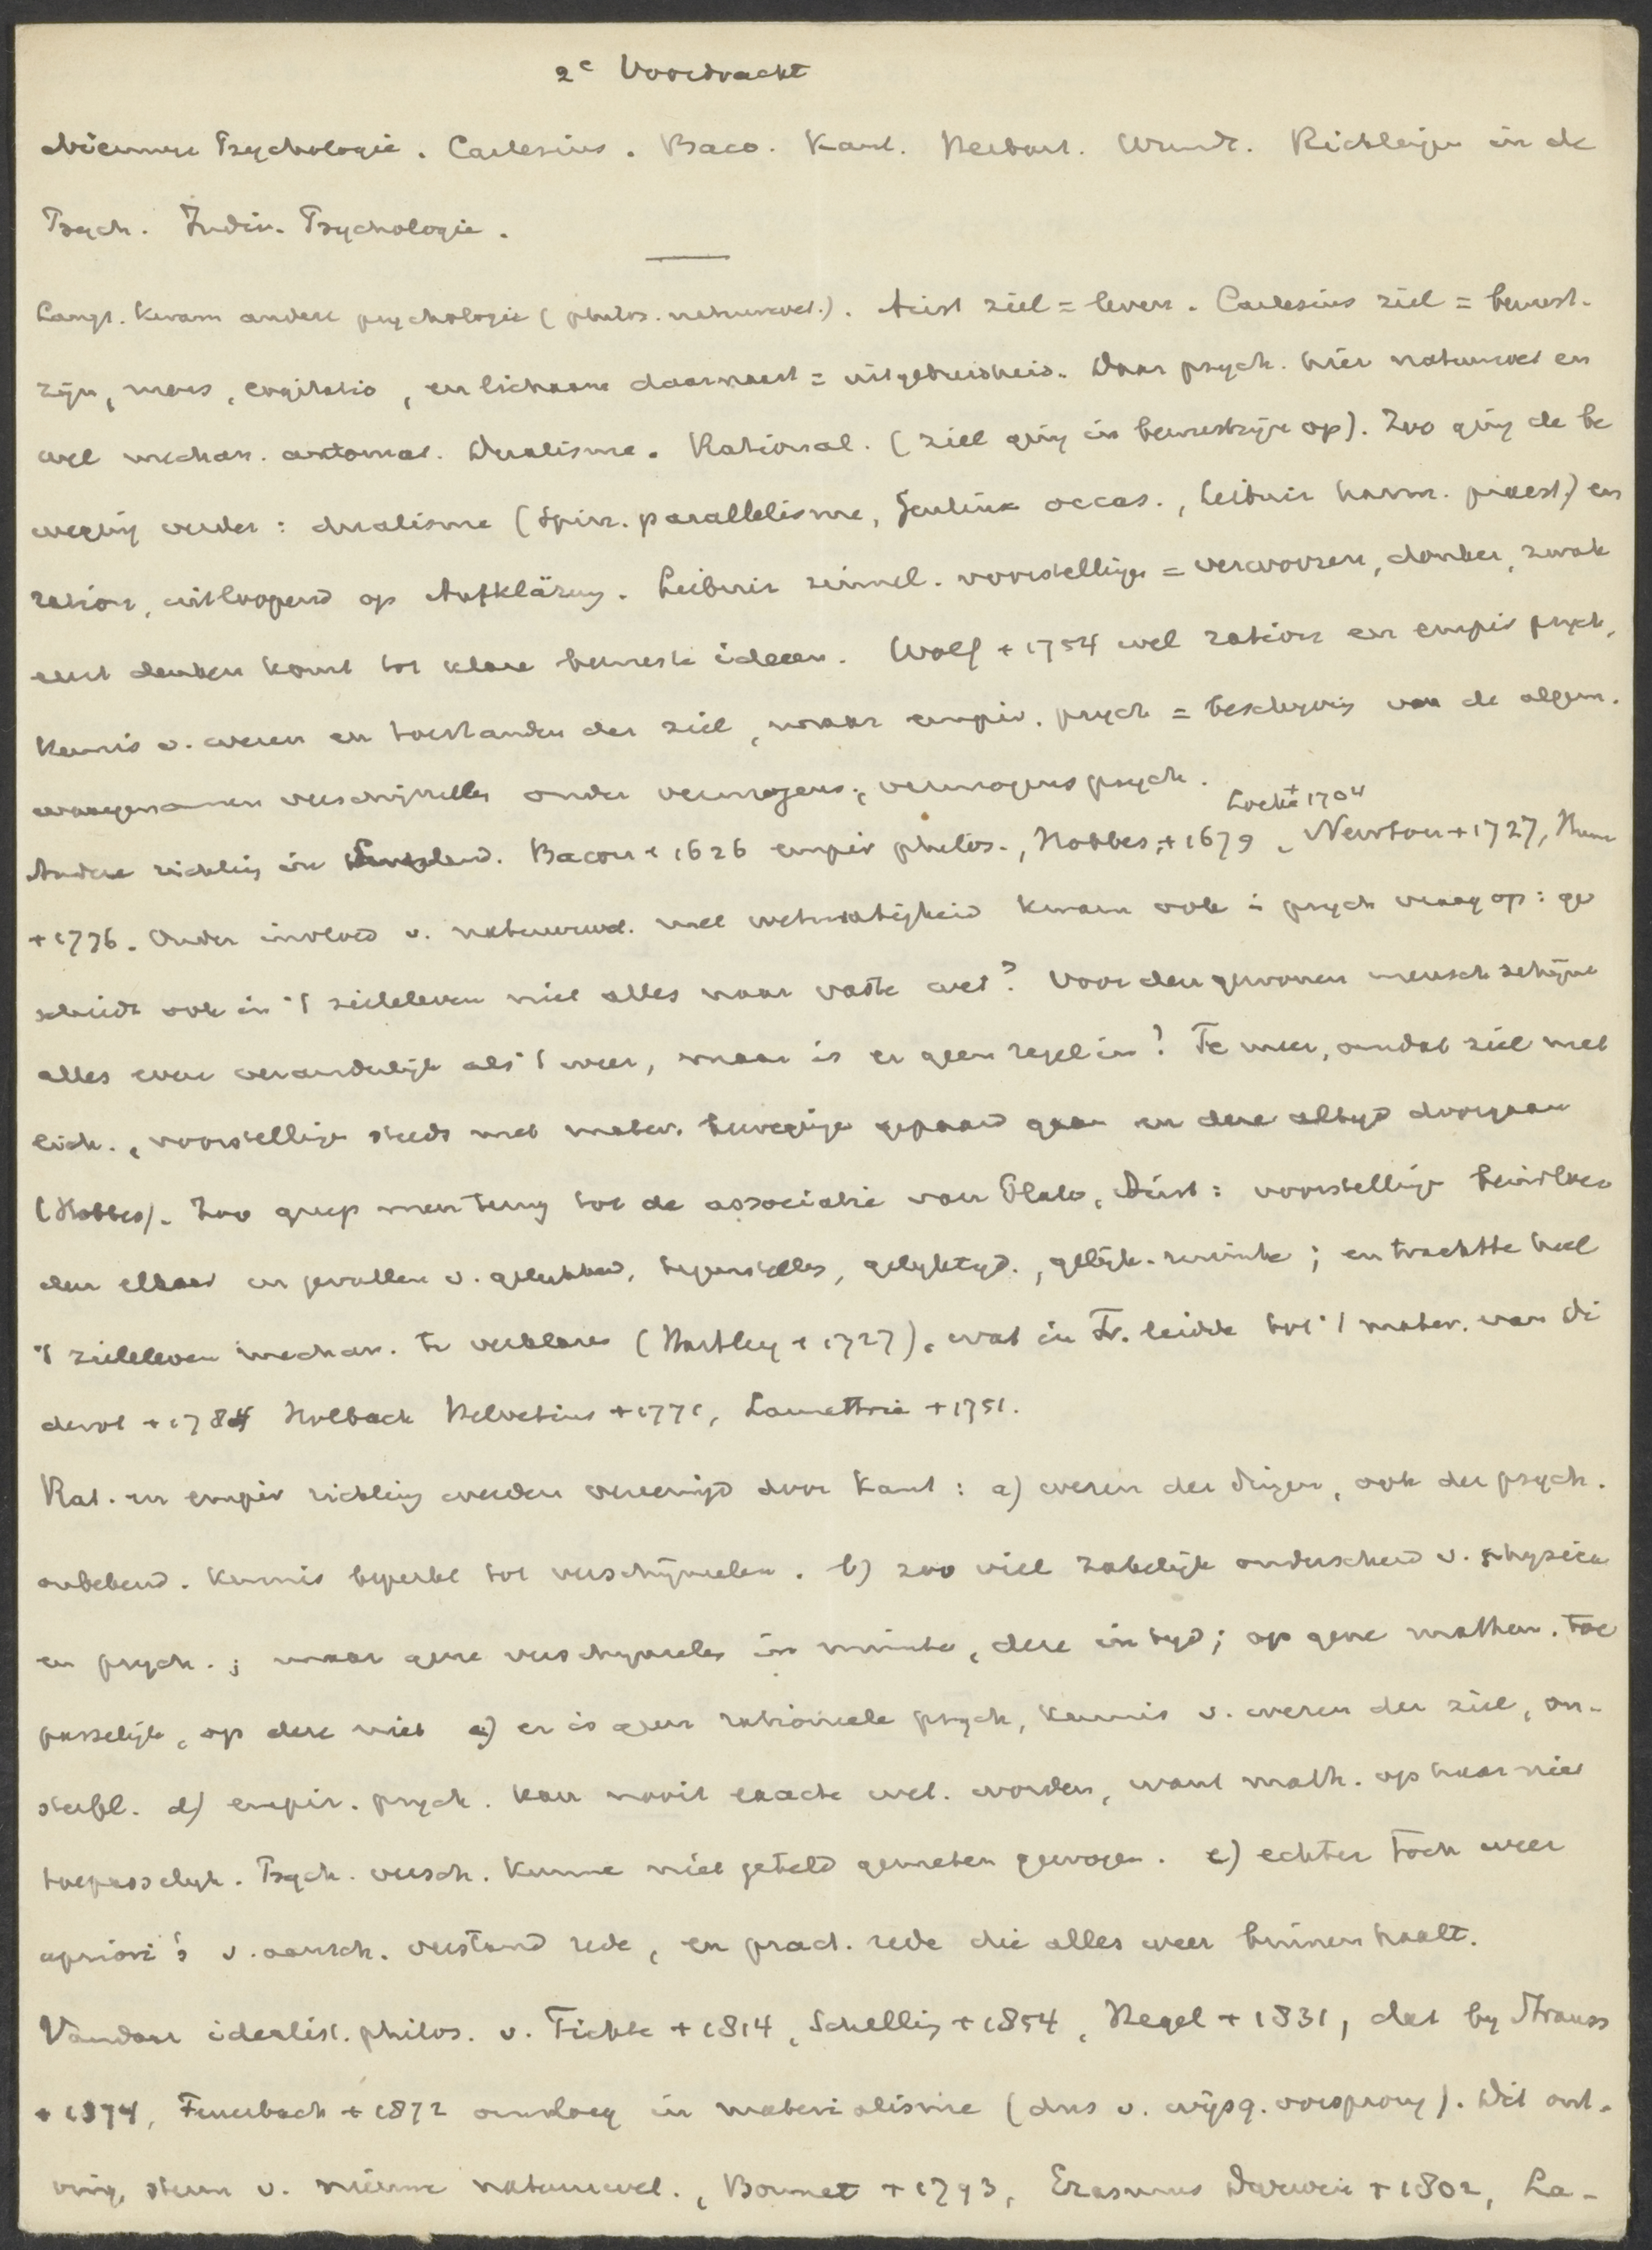 2e Voordracht
Nieuwere Psychologie. Cartesius. Baco. Kant. Herbart. Wundt. Richtingen in de
Psych. Indiv. Psychologie.
Langz. kwam andere psychologie (philos. natuurwet.). Arist ziel = leven. Cartesius ziel = bewust-
zijn, mens, cogitatio, en lichaam daarnaast = uitgebreidheid. Daar psych. hier natuurwet en
wel mechan. automat. Dualisme. Rational. (ziel ging in bewustzijn op). Zoo ging de be
weging verder: dualisme (Spin. parallelisme, Geulinx occas., Leibniz harm. praest.) en
ration, uitloopend op Aufklärung. Leibniz zinnel. voorstellingen = verworren, donker, zwak
eerst denken komt tot klare bewuste ideeen. Wolf + 1754 wel ration en empir psych,
kennis v. wezen en toestanden der ziel, maar empir. psych = beschrijving van de algem.
waargenomen verschijnselen onder vermogens, vermogenspsych.
Andere richting in Engeland. Bacon + 1626 empir philos., Hobbes + 1679, Locke + 1704 Newton + 1727, Hume
+ 1776. Onder invloed v. natuurwet. met wetmatigheid kwam ook i psych vraag op: ge
schiedt ook in 't zieleleven niet alles naar vaste wet? Voor den gewonen mensch schijnt
alles even veranderlijk als 't weer, maar is er geen regel in? Te meer, omdat ziel met
lich., voorstellingen steeds met mater. bewegingen gepaard gaan en deze altijd doorgaan
(Hobbes). Zoo greep men terug tot de associatie van Plato, Arist: voorstellingen beinvloe
den elkaar in gevallen v. gelijkheid, tegenstelles, gelijktijd., gelijk. ruimte; en trachtte heel
't zieleleven mechan. te verklaren (Hartley + 1727), wat in Fr. leidde tot 't mater. van Di
derot + 1784 Holbach Helvetius + 1771, Lamettrie + 1751.
Rat. en empir richting werden vereenigd door Kant: a) wezen der dingen, ook der psych.
onbekend. Kennis beperkt tot verschijnselen. b) zoo viel zakelijk onderscheid v. physica
en psych.; maar gene verschijnselen in ruimte, deze in tijd; op gene mathem. toe
passelijk, op deze niet c) er is geen rationeele psych, kennis v. wezen der ziel, on-
sterfl. d) empir. psych. kan nooit exacte wet. worden, want math. op haar niet
toepasselijk. Psych. versch. kunnen niet geteld gemeten gewogen. e) echter toch weer
apriori's v. aansch. verstand rede, en pract. rede die alles weer binnenhaalt.
Vandaar idealist. philos. v. Fichte + 1814, Schelling + 1854, Hegel + 1831, dat by Strauss
+ 1874, Feuerbach + 1872 omsloeg in materialisme (dus v. wijsg. oorsprong). Dit ont-
ving, steun v. nieuwe natuurwet., Bonnet + 1793, Erasmus Darwin + 1802, La-